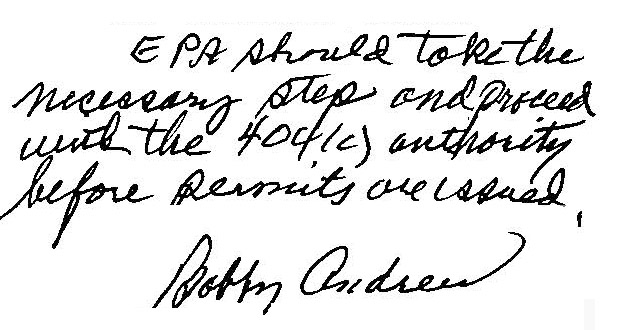 EPA should take the
necessary step and proceed
with the 404(c) authority
before permits are issued.
Bobby Andrew